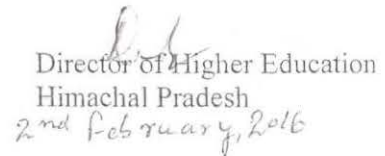 Director of Higher Education
Himachal Pradesh
2nd February, 2016